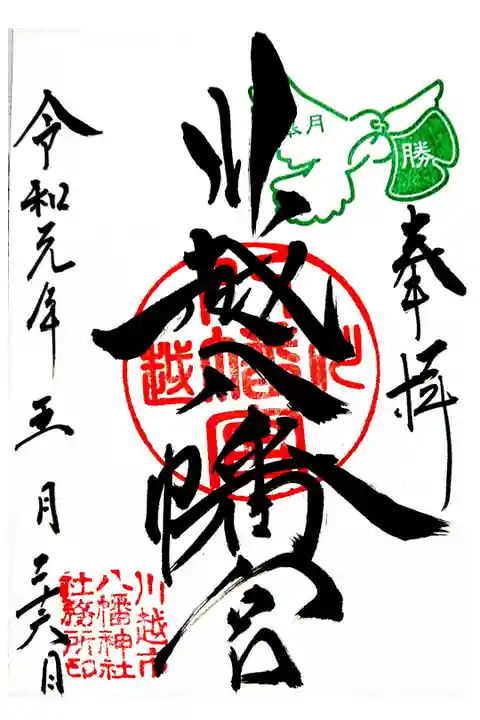 奉拝
勝
川越八幡宮
川越八幡宮
令和元年五月二十六日
川越市
八幡神社
社務所印